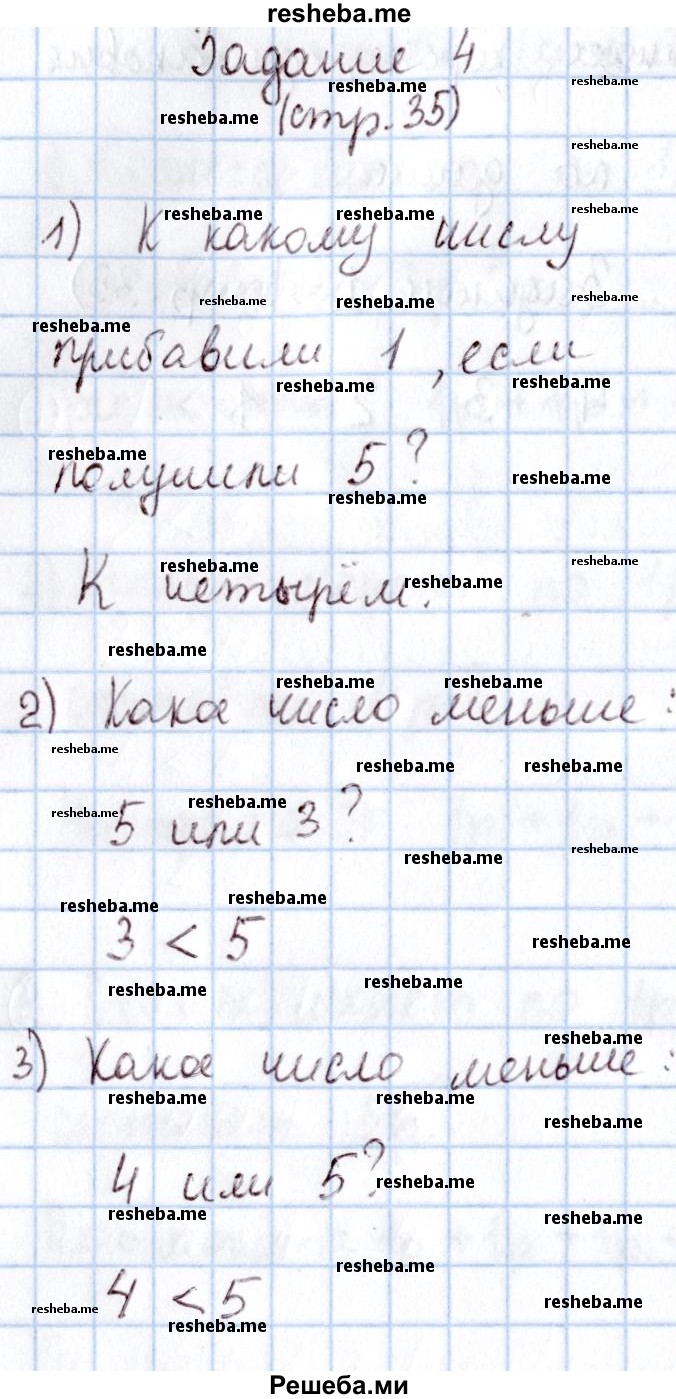 resheba.me
Задание 4
(стр. 35)
1) К какому числу
прибавили 1, если
получили 5?
К четырём.
2) Какое число меньше:
5 или 3?
3 < 5
3) Какое число меньше:
4 или 5?
4 < 5
Решеба.ми